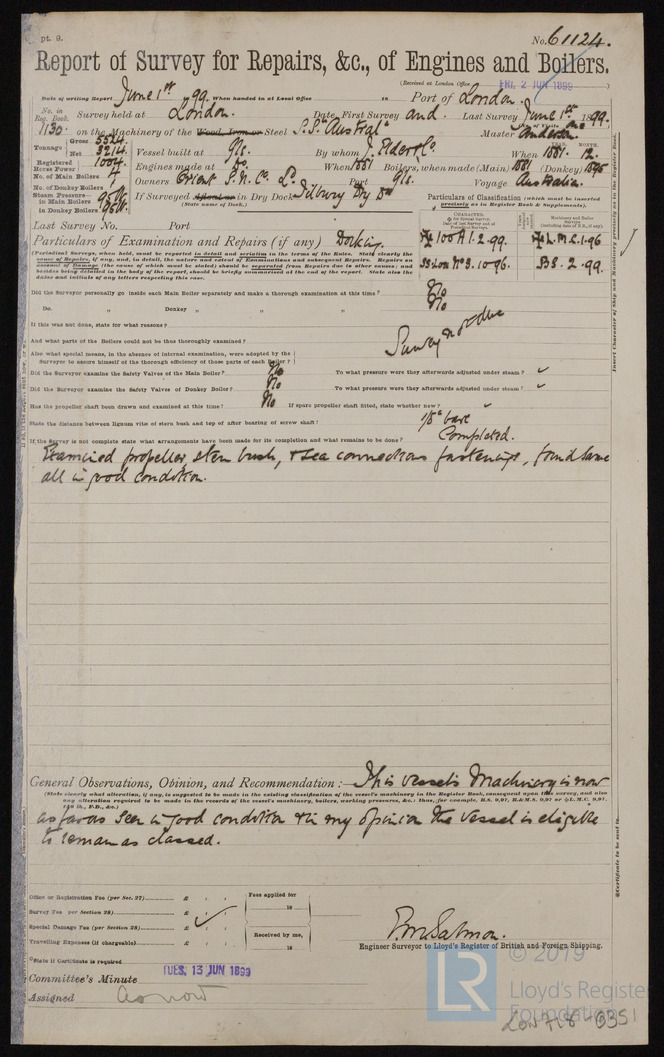 pt. 9.
No. 61124.
Report of Survey for Repairs, &c., of Engines and Boilers.
(Received at London Office FRI. 2 JUN 1899)
Date of writing Report June 1st 99 When handed in at Local Office 18 Port of London.
No. in Reg. Book. Survey held at London. Date, First Survey and Last Survey June 1st 1899.
1130 on the Machinery of the Wood, Iron or Steel S.S. Austral Master Anderson
Tonnage Gross 5524 Net 3214 Vessel built at Gls. By whom J. Elder & Co. When 1881. 12.
Registered Horse Power 1004 Engines made at Do. When 1881 Boilers, when made (Main) 1881 (Donkey) 1896
No. of Main Boilers 4 Owners Orient S. N. Co. Ld. Port Gls. Voyage Australia.
No. of Donkey Boilers
Steam Pressure in Main Boilers 95 lb
in Donkey Boilers 95 lb. If Surveyed Afloat or in Dry Dock Tilbury Dry Dk
(State name of Dock.)
Particulars of Classification (which must be inserted precisely as in Register Book & Supplements).
Last Survey No. Port
CHARACTER. Machinery and Boiler Surveys (including date of N.B., if any)
Particulars of Examination and Repairs (if any) Docking.
100 A 1. 2. 99. L.M.C. 1.96
SS Lon No 3. 10-96. B.S. 2. 99.
(Periodical Surveys, when held, must be reported in detail and seriatim in the terms of the Rules. State clearly the
cause of Repairs, if any, and, in detail, the nature and extent of Examinations and subsequent Repairs. Repairs on
account of Damage (the cause of which must be stated) should be separated from Repairs due to other causes; and
besides being detailed in the body of the report, should be briefly summarised at the end of the report. State also the
dates and initials of any letters respecting this case.
Did the Surveyor personally go inside each Main Boiler separately and make a thorough examination at this time? No
Do. " Donkey " " " No
If this was not done, state for what reasons? Survey not due
And what parts of the Boilers could not be thus thoroughly examined?
Also what special means, in the absence of internal examination, were adopted by the
Surveyor to assure himself of the thorough efficiency of those parts of each Boiler?
Did the Surveyor examine the Safety Valves of the Main Boiler? No To what pressure were they afterwards adjusted under steam? "
Did the Surveyor examine the Safety Valves of Donkey Boiler? No To what pressure were they afterwards adjusted under steam? "
Has the propeller shaft been drawn and examined at this time? No If spare propeller shaft fitted, state whether new? "
State the distance between lignum vitæ of stern bush and top of after bearing of screw shaft? 1/8" bare
If the Survey is not complete state what arrangements have been made for its completion and what remains to be done? Completed.
Examined propeller, stern bush, & sea connections fastenings, found same
all in good condition.
General Observations, Opinion, and Recommendation:— This vessel's Machinery is now
(State clearly what alteration, if any, is suggested to be made in the existing classification of the vessel's machinery in the Register Book, consequent upon this survey, and also
any alteration required to be made in the records of the vessel's machinery, boilers, working pressures, &c.: thus, for example, B.S. 9,97, B.&M.S. 9,97 or L.M.C. 9,97.
as far as seen in good condition & in my opinion the vessel is eligible
to remain as classed.
Office or Registration Fee (per Sec. 27) £ : :
Survey Fee per Section 28) £ : :
Special Damage Fee (per Section 28) £ : :
Travelling Expenses (if chargeable) £ : :
Fees applied for
18
Received by me,
18
Engineer Surveyor to Lloyd's Register of British and Foreign Shipping.
State if Certificate is required
Committee's Minute TUES. 13 JUN 1899
Assigned as now
© 2019
LR
Lloyd's Register
Foundation
LON 718-0351